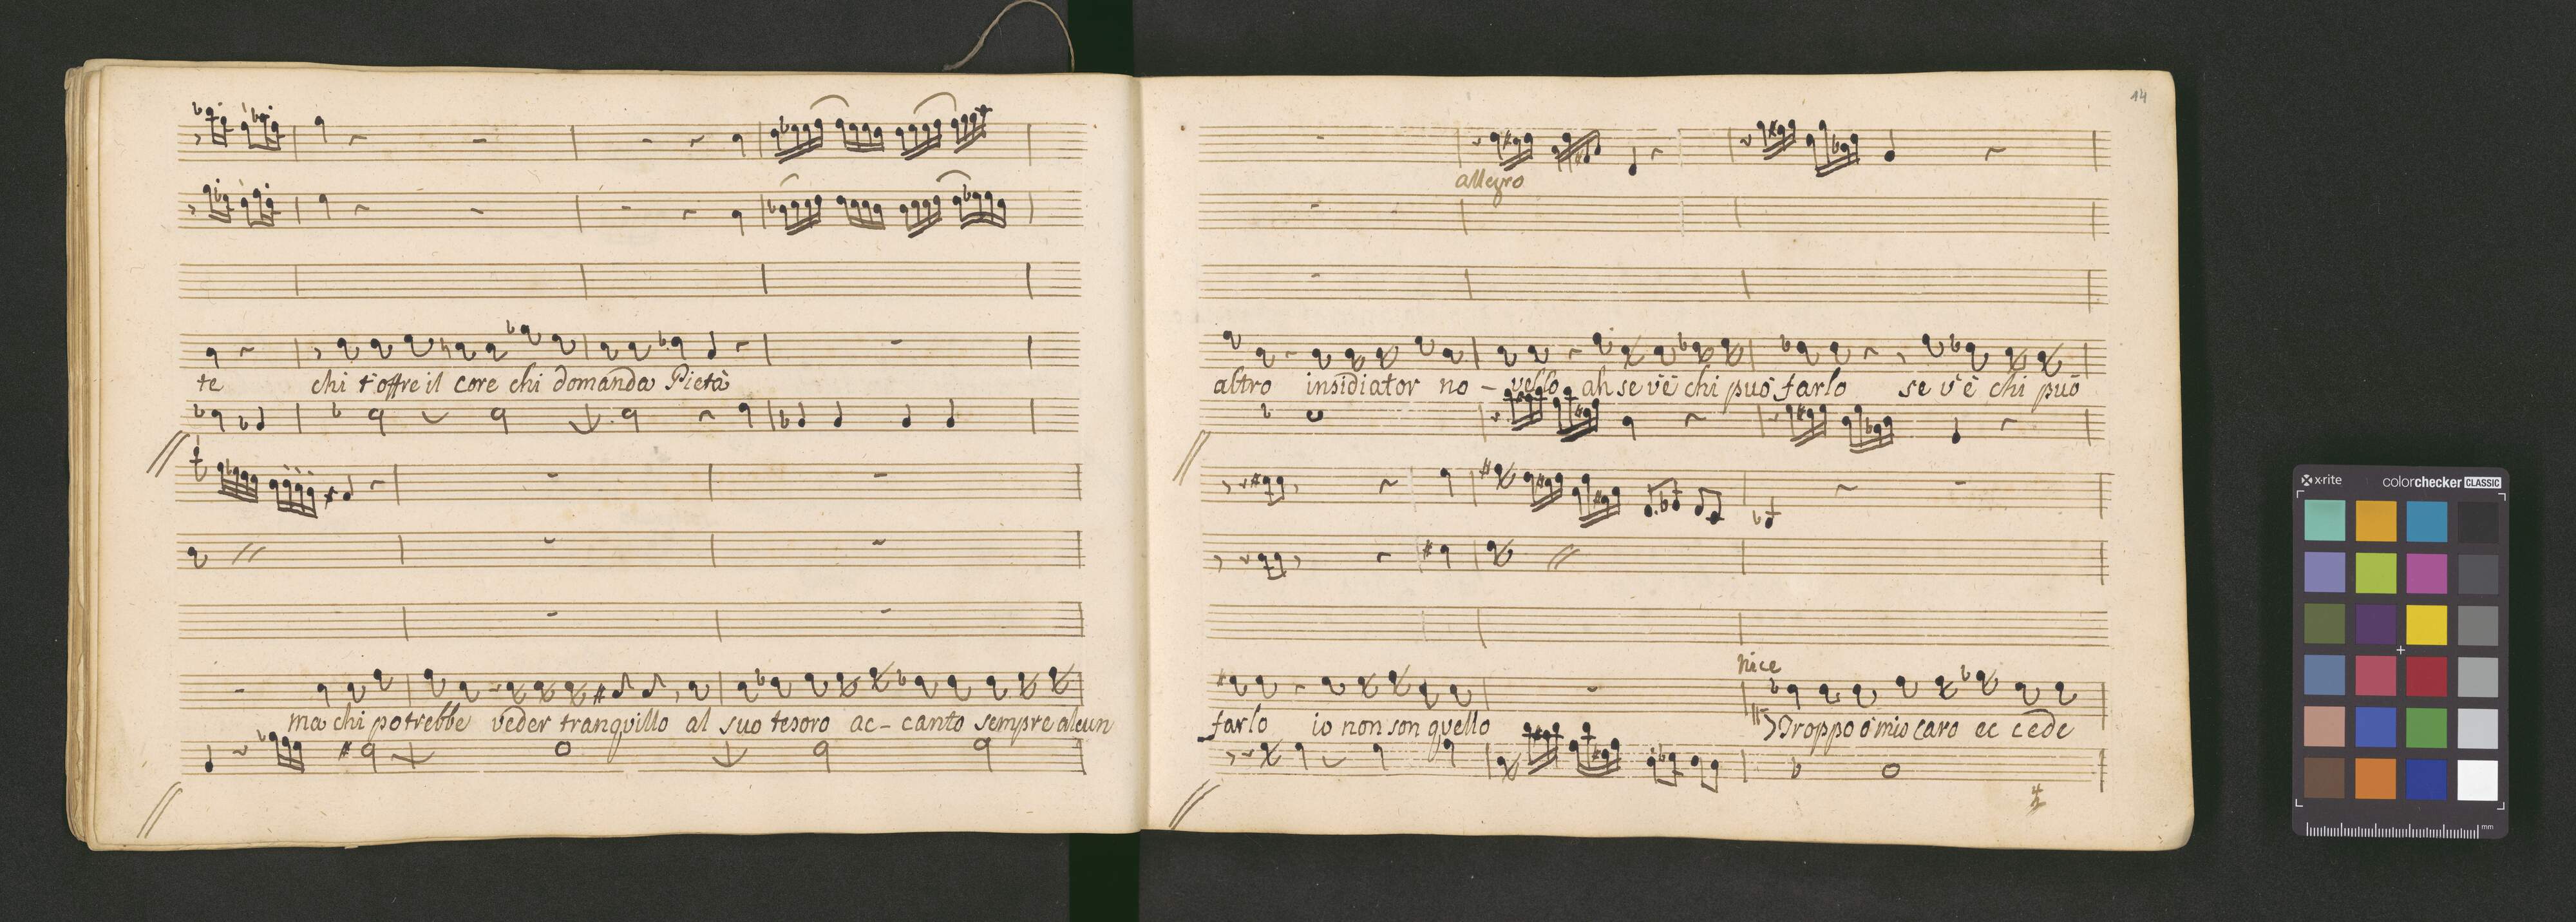 te chi t'offre il core chi domanda Pietà
ma chi potrebbe veder tranquillo al suo tesoro ac-canto sempre alcun
14
allegro
altro insidiator no-vello ah se v'è chi può farlo se v'è chi può
nice
farlo io non son quello Troppo ò mio caro ec cede
x-rite colorchecker CLASSIC
mm